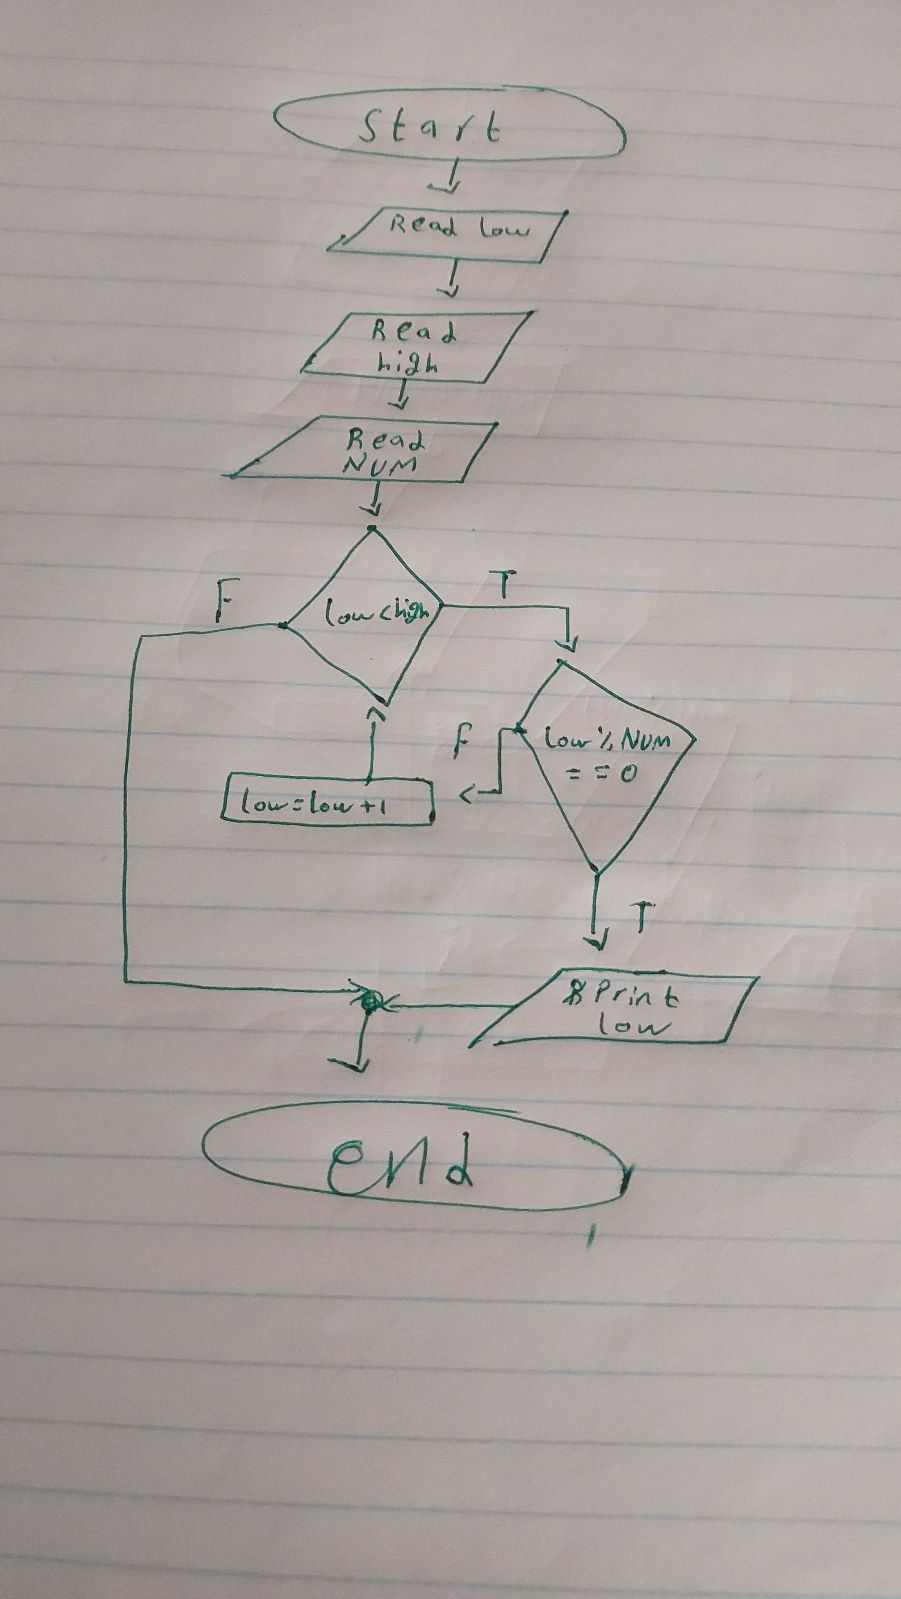 Start
Read low
Read
high
Read
NUM
F
T
low<high
F
low % NUM
== 0
low=low+1
T
Print
low
end